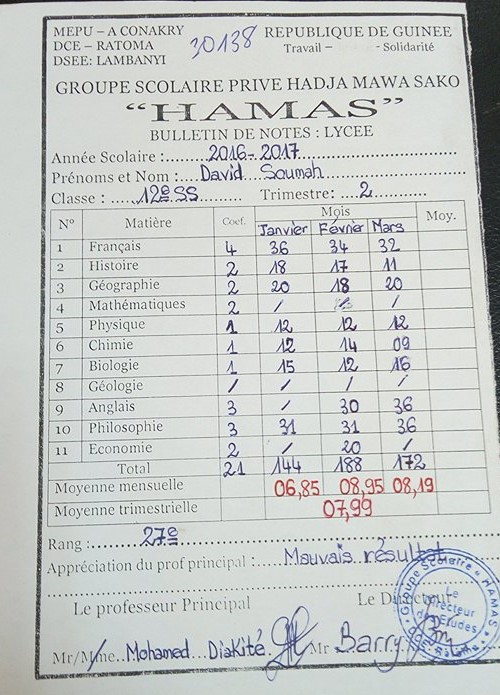 MEPU – A CONAKRY
DCE – RATOMA
DSEE: LAMBANYI
30138
REPUBLIQUE DE GUINEE
Travail – - Solidarité
GROUPE SCOLAIRE PRIVE HADJA MAWA SAKO
“HAMAS”
BULLETIN DE NOTES : LYCEE
Année Scolaire : 2016-2017
Prénoms et Nom : David Soumah
Classe : 12e SS Trimestre: 2
N° Matière Coef. Mois Moy.
Janvier Février Mars
1 Français 4 36 34 32
2 Histoire 2 18 17 11
3 Géographie 2 20 18 20
4 Mathématiques 2 / /
5 Physique 1 12 12 12
6 Chimie 1 12 14 09
7 Biologie 1 15 12 16
8 Géologie / / / /
9 Anglais 3 / 30 36
10 Philosophie 3 31 31 36
11 Economie 2 / 20 /
Total 21 144 188 172
Moyenne mensuelle 06,85 08,95 08,19
Moyenne trimestrielle 07,99
Rang : 27e
Appréciation du prof principal : Mauvais résultat
Le professeur Principal Le Directeur
Mr/Mme Mohamed Diakité Mr Barry
Groupe Scolaire « HAMAS »
Le Directeur des Etudes